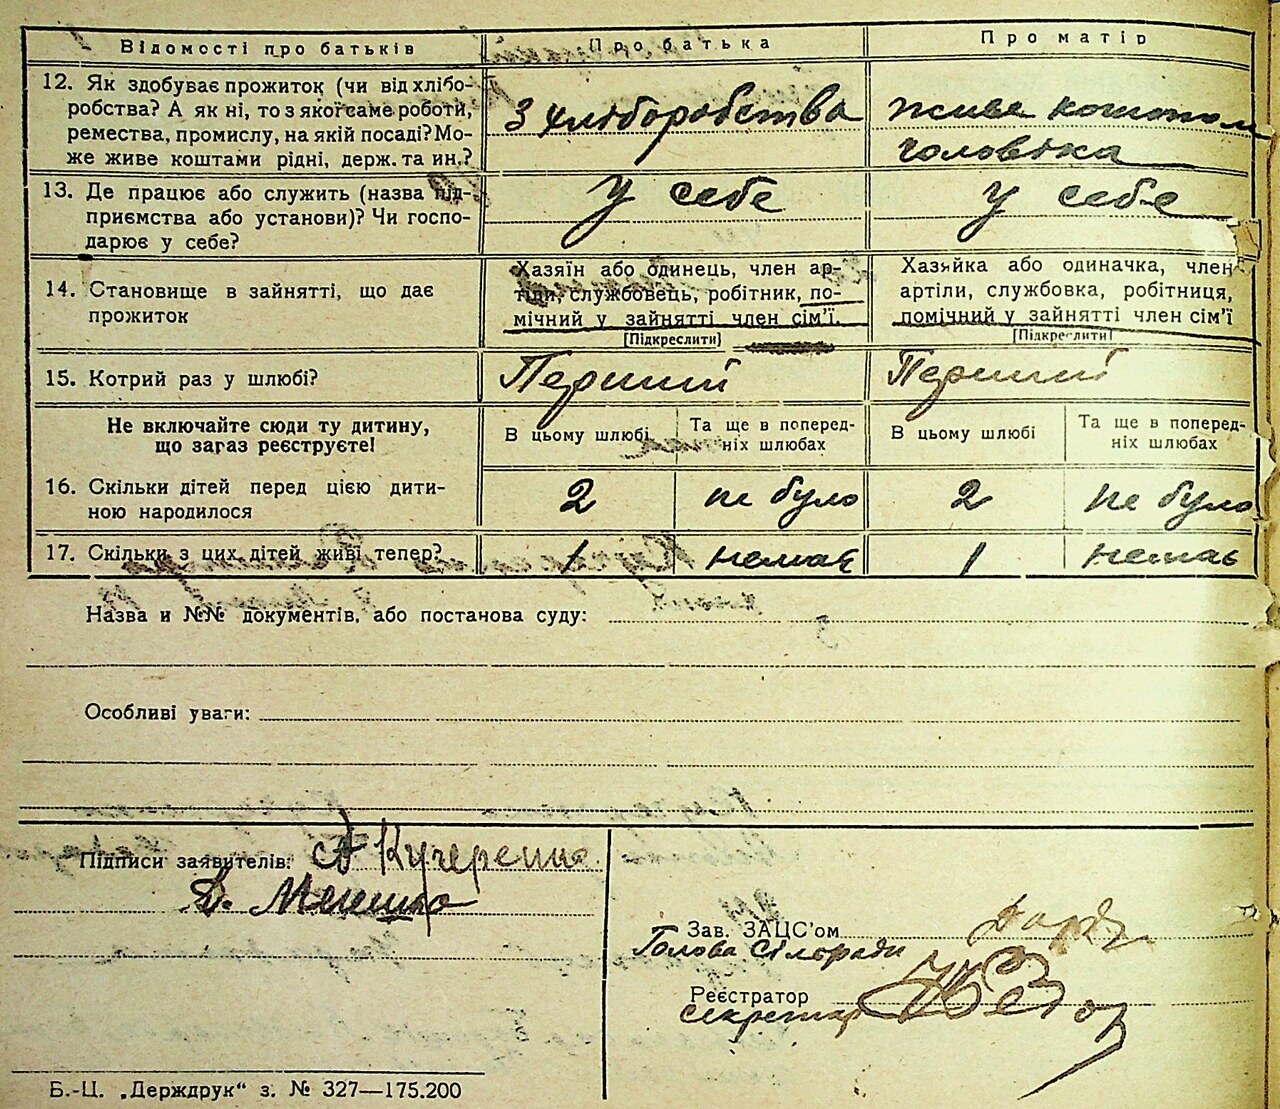 Відомості про батьків Про батька Про матір
12. Як здобуває прожиток (чи від хлібо-
робства? А як ні, то з якої саме роботи,
ремества, промислу, на якій посаді? Мо-
же живе коштами рідні, держ. та ин.?
З хліборобства
живе коштом
чоловіка
13. Де працює або служить (назва під-
приємства або установи)? Чи госпо-
дарює у себе?
у себе
у себе
14. Становище в зайнятті, що дає
прожиток
Хазяїн або одинець, член ар-
тілі, службовець, робітник, по-
мічний у зайнятті член сім'ї.
[Підкреслити]
Хазяйка або одиначка, член
артіли, службовка, робітниця,
помічний у зайнятті член сім'ї
[Підкреслити]
15. Котрий раз у шлюбі?
Перший
Перший
Не включайте сюди ту дитину,
що загаз реєструєте!
В цьому шлюбі
Та ще в поперед-
ніх шлюбах
В цьому шлюбі
Та ще в поперед-
ніх шлюбах
16. Скільки дітей перед цією дити-
ною народилося
2 не було 2 не було
17. Скільки з цих дітей живі тепер?
1 немає 1 немає
Назва и №№ документів, або постанова суду:
Особливі уваги:
Підписи заявителів:
Зав. ЗАЦС'ом
Голова Сілоради
Реєстратор
секретар
Б.-Ц. „Держдрук“ з. № 327—175.200